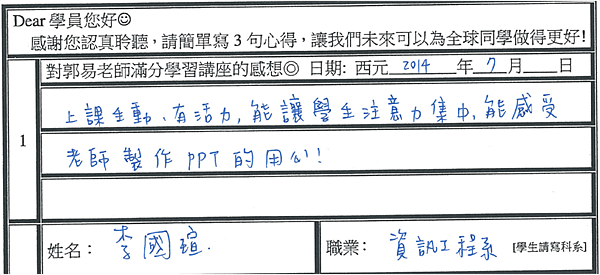 Dear 學員您好☺
感謝您認真聆聽，請簡單寫 3 句心得，讓我們未來可以為全球同學做得更好!
對郭易老師滿分學習講座的感想◎ 日期: 西元 2014 年 7 月 日
1
上課生動、有活力,能讓學生注意力集中,能感受
老師製作PPT的用心!
姓名： 李國瑄. 職業： 資訊工程系 [學生請寫科系]